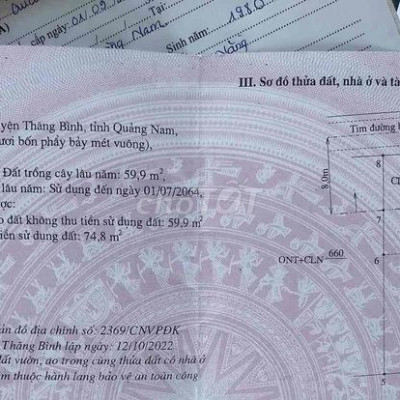 cấp ngày: 01/09
Tại:
Nam
Sinh năm: 1980
III. Sơ đồ thửa đất, nhà ở và tà
yện Thăng Bình, tỉnh Quảng Nam,
ươi bốn phẩy bảy mét vuông),
Tim đường
Đất trồng cây lâu năm: 59,9 m²,
lâu năm: Sử dụng đến ngày 01/07/2064,
ợc:
o đất không thu tiền sử dụng đất: 59,9 m²
iền sử dụng đất: 74,8 m²
CHỢTỐT
8
8.0m
7
ONT+CLN 660
6
5
ản đồ địa chính số: 2369/CNVPĐK
Thăng Bình lập ngày: 12/10/2022
đất vườn, ao trong cùng thửa đất có nhà ở
m thuộc hành lang bảo vệ an toàn công